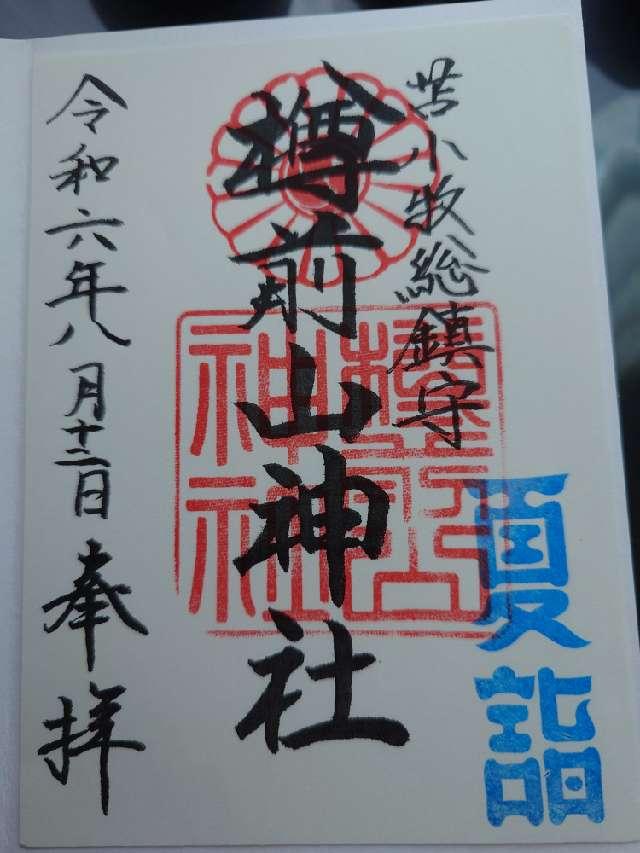 苫小牧総鎮守
樽前山神社
樽前山神社
令和六年八月十二日奉拝
夏詣